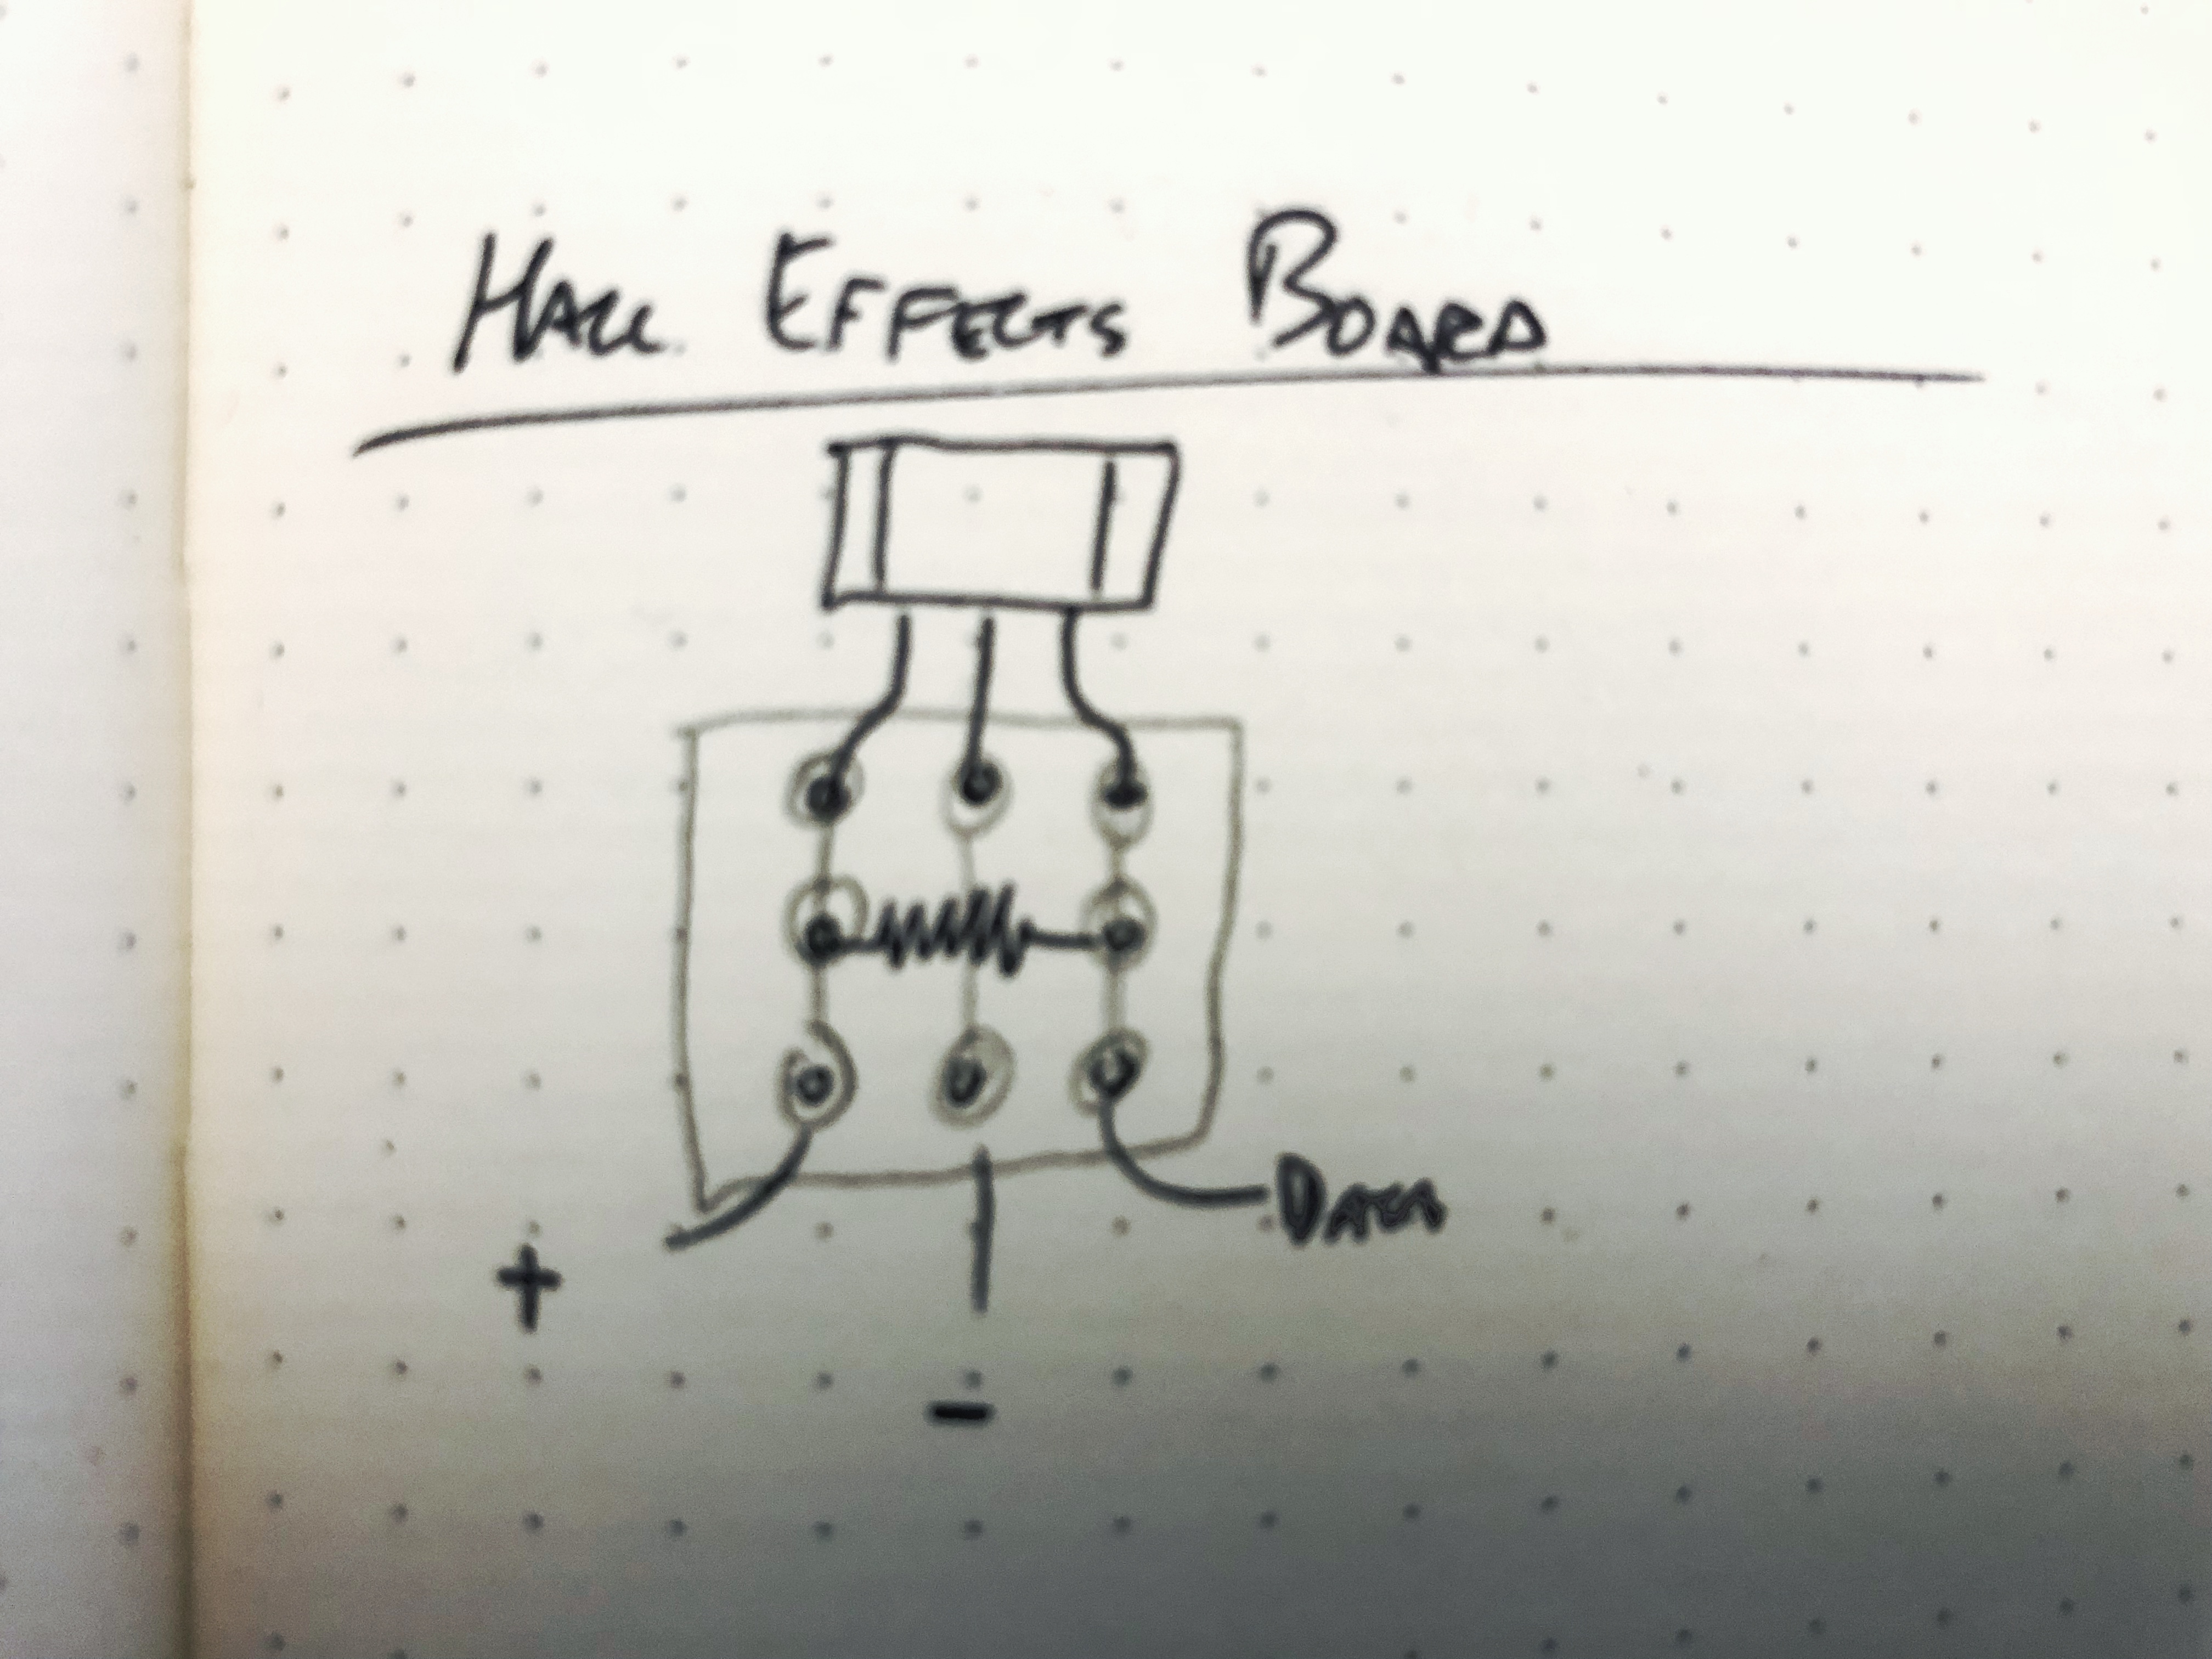 HALL EFFECTS BOARD
DATA
+
-